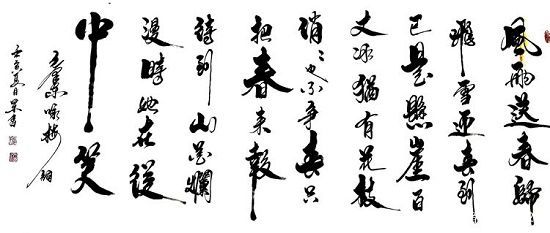 風雨送春歸
飛雪迎春到
已是懸崖百
丈冰猶有花枝
俏〻也不爭春只
把春來報
待到山花爛
漫時她在從
中笑
咏梅詞